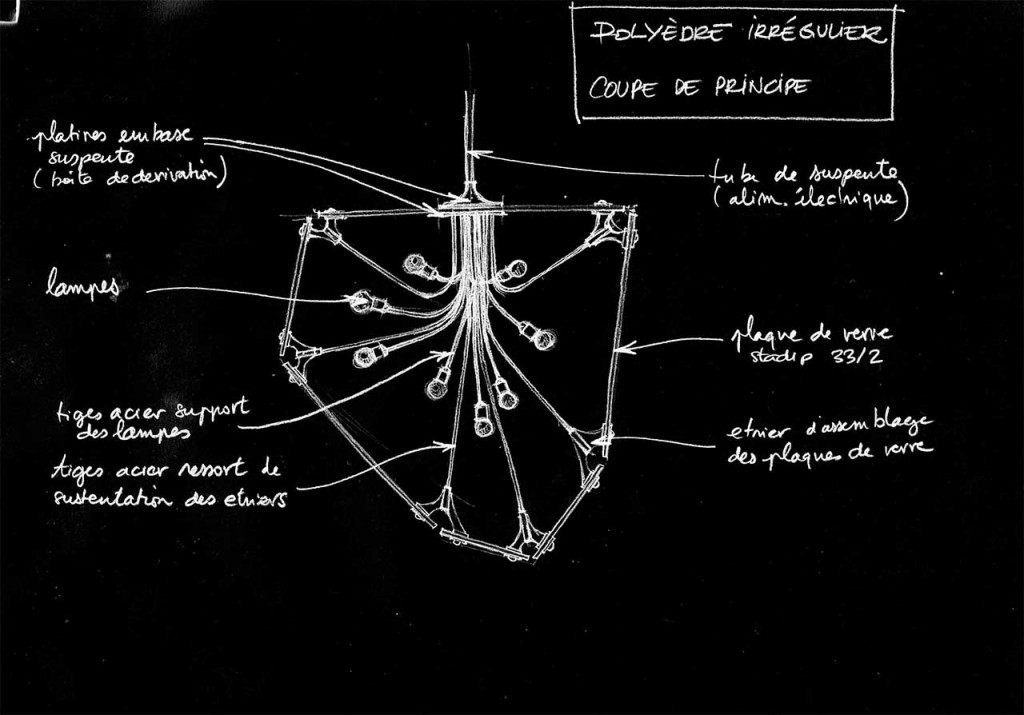 POLYÈDRE IRRÉGULIER
COUPE DE PRINCIPE
platines embase
suspente
(boite de derivation)
tube de suspente
(alim. électrique)
lampes
plaque de verre
stadip 33/2
tiges acier support
des lampes
etrier d'assemblage
des plaques de verre
tiges acier ressort de
sustentation des etriers